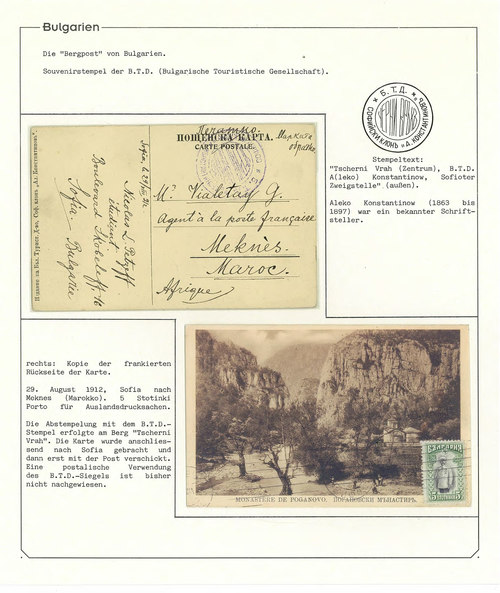 Bulgarien
Die "Bergpost" von Bulgarien.
Souvenirstempel der B.T.D. (Bulgarische Touristische Gesellschaft).
* Б.Т.Д. *
СОФИЙСКИ КЛОНЪ "А. КОНСТАНТИНОВЪ"
Stempeltext:
"Tscherni Vrah (Zentrum), B.T.D.
A(leko) Konstantinow, Sofioter
Zweigstelle" (außen).
Aleko Konstantinow (1863 bis
1897) war ein bekannter Schrift-
steller.
Печатно
ПОЩЕНСКА КАРТА.
CARTE POSTALE.
Марката
обратно.
Издание на Бъл. Турист. Д-во, Соф. клон „Ал. Константинов“.
Sofia,
Nicolas
étudiant
Boulevard Skobeleff 16
Sofia - Bulgarie
Mr. Vialetay G.
Agent à la poste française
Meknès.
Maroc.
Afrique
rechts: Kopie der frankierten
Rückseite der Karte.
29. August 1912, Sofia nach
Meknes (Marokko). 5 Stotinki
Porto für Auslandsdrucksachen.
Die Abstempelung mit dem B.T.D.-
Stempel erfolgte am Berg "Tscherni
Vrah". Die Karte wurde anschlies-
send nach Sofia gebracht und
dann erst mit der Post verschickt.
Eine postalische Verwendung
des B.T.D.-Siegels ist bisher
nicht nachgewiesen.
MONASTÈRE DE POGANOVO. ПОГАНОВСКИ МЪНАСТИРЬ.
БЪЛГАРИЯ
5